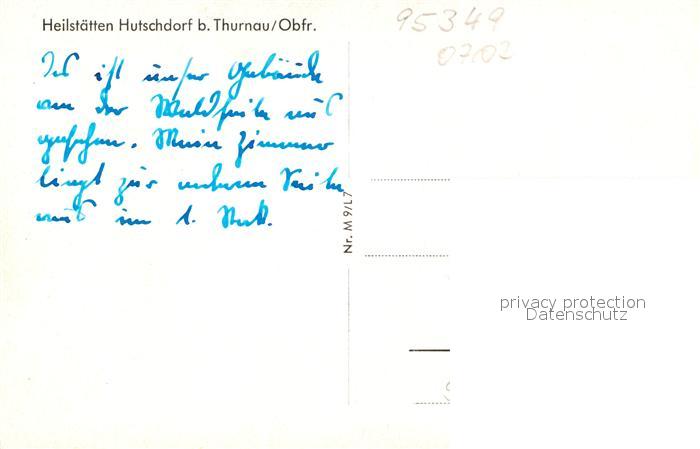 Heilstätten Hutschdorf b. Thurnau/Obfr.
95349
0702
Das ist unser Gebäude
von der Waldseite aus
gesehen. Mein Zimmer
liegt zur anderen Seite
aus im 1. Stock.
Nr. M 9/L7
privacy protection
Datenschutz